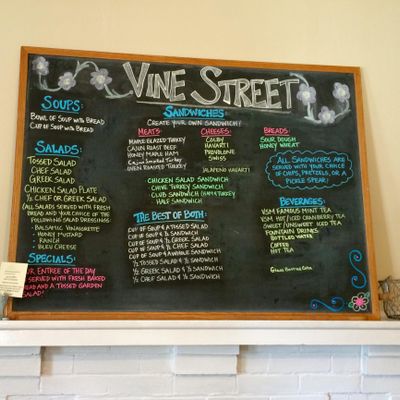 VINE STREET
SOUPS:
BOWL OF SOUP WITH BREAD
CUP OF SOUP WITH BREAD
SALADS:
TOSSED SALAD
CHEF SALAD
GREEK SALAD
CHICKEN SALAD PLATE
½ CHEF OR GREEK SALAD
(ALL SALADS SERVED WITH FRESH
BREAD AND YOUR CHOICE OF THE
FOLLOWING SALAD DRESSINGS)
- BALSAMIC VINAIGRETTE
- HONEY MUSTARD
- RANCH
- BLEU CHEESE
SPECIALS:
OUR ENTREE OF THE DAY
SERVED WITH FRESH BAKED
BREAD AND A TOSSED GARDEN
SALAD!
SANDWICHES
CREATE YOUR OWN SANDWICH!
MEATS:
MAPLE GLAZED TURKEY
CAJUN ROAST BEEF
HONEY MAPLE HAM
CAJUN SMOKED TURKEY
OVEN ROASTED TURKEY
CHEESES:
COLBY
HAVARTI
PROVOLONE
SWISS
JALAPENO HAVARTI
BREADS:
SOUR DOUGH
HONEY WHEAT
CHICKEN SALAD SANDWICH
CHIVE TURKEY SANDWICH
CLUB SANDWICH (HAM & TURKEY)
HALF SANDWICH
ALL SANDWICHES ARE
SERVED WITH YOUR CHOICE
OF CHIPS, PRETZELS, OR A
PICKLE SPEAR!
THE BEST OF BOTH:
CUP OF SOUP & TOSSED SALAD
CUP OF SOUP & ½ SANDWICH
CUP OF SOUP & ½ GREEK SALAD
CUP OF SOUP & ½ CHEF SALAD
CUP OF SOUP & WHOLE SANDWICH
½ TOSSED SALAD & ½ SANDWICH
½ GREEK SALAD & ½ SANDWICH
½ CHEF SALAD & ½ SANDWICH
BEVERAGES:
VSM FAMOUS MINT TEA
VSM HOT/ICED CRANBERRY TEA
SWEET/UNSWEET ICED TEA
FOUNTAIN DRINKS
BOTTLED WATER
COFFEE
HOT TEA